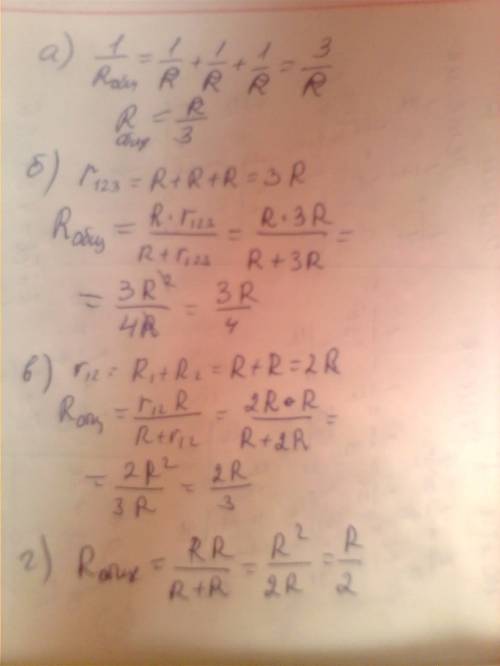 а) 1/Rобщ = 1/R + 1/R + 1/R = 3/R
Rобщ = R/3
б) r123 = R + R + R = 3R
Rобщ = R · r123 / R + r123 = R · 3R / R + 3R =
= 3R² / 4R = 3R / 4
в) r12 = R1 + R2 = R + R = 2R
Rобщ = r12 R / R + r12 = 2R · R / R + 2R =
= 2R² / 3R = 2R / 3
г) Rобщ = RR / R + R = R² / 2R = R / 2